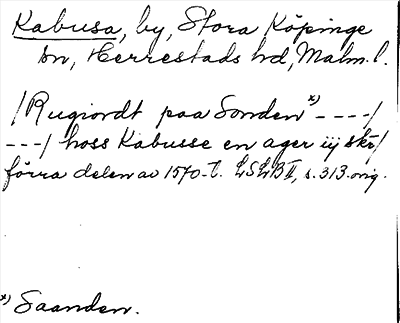 Kabusa, by, Stora Köpinge
sn, Herrestads hd, Malm. l.
/Rugiordt paa Sonden x) ----/
---/ hoss Kabusse en ager iij skr/
förra delen av 1570-t. LSLB II, s. 313. orig.
x) Saanden.